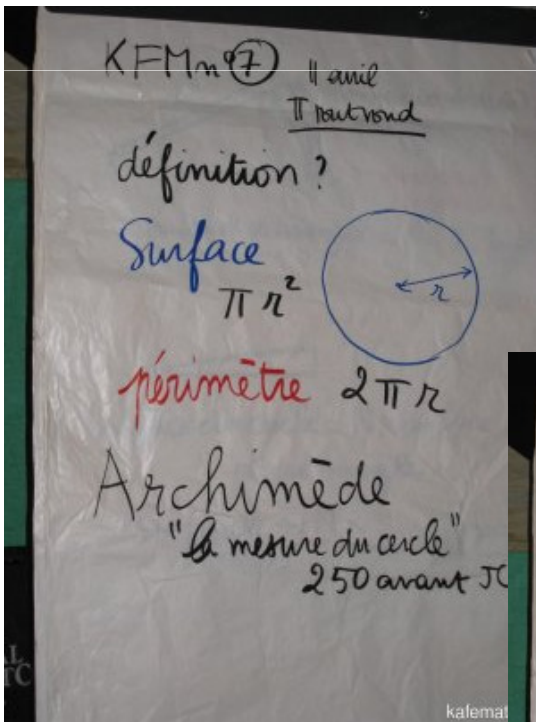 KFM n° 7
11 avril
π tout rond
définition ?
Surface
π r²
r
périmètre 2 π r
Archimède
"la mesure du cercle"
250 avant JC
kafemat